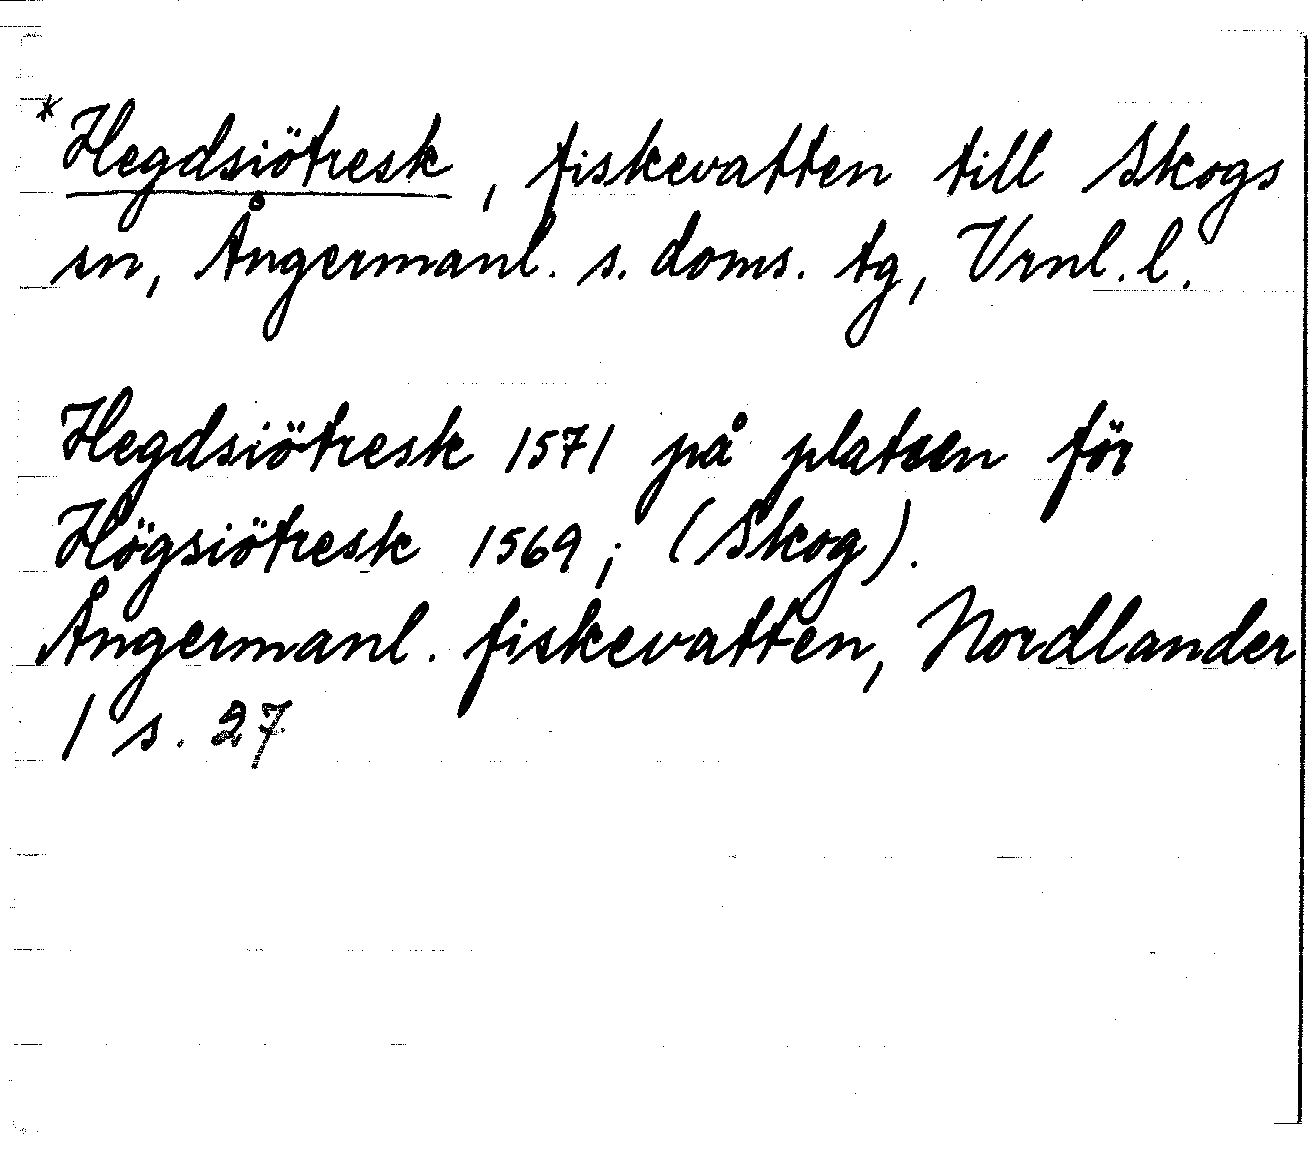 * Hegdsiötresk, fiskevatten till Skogs
sn, Ångermanl. s. doms. tg, Vrnl. l.
Hegdsiötresk 1571 på platsen för
Högsiötresk 1569; (Skog).
Ångermanl. fiskevatten, Nordlander
1 s. 27